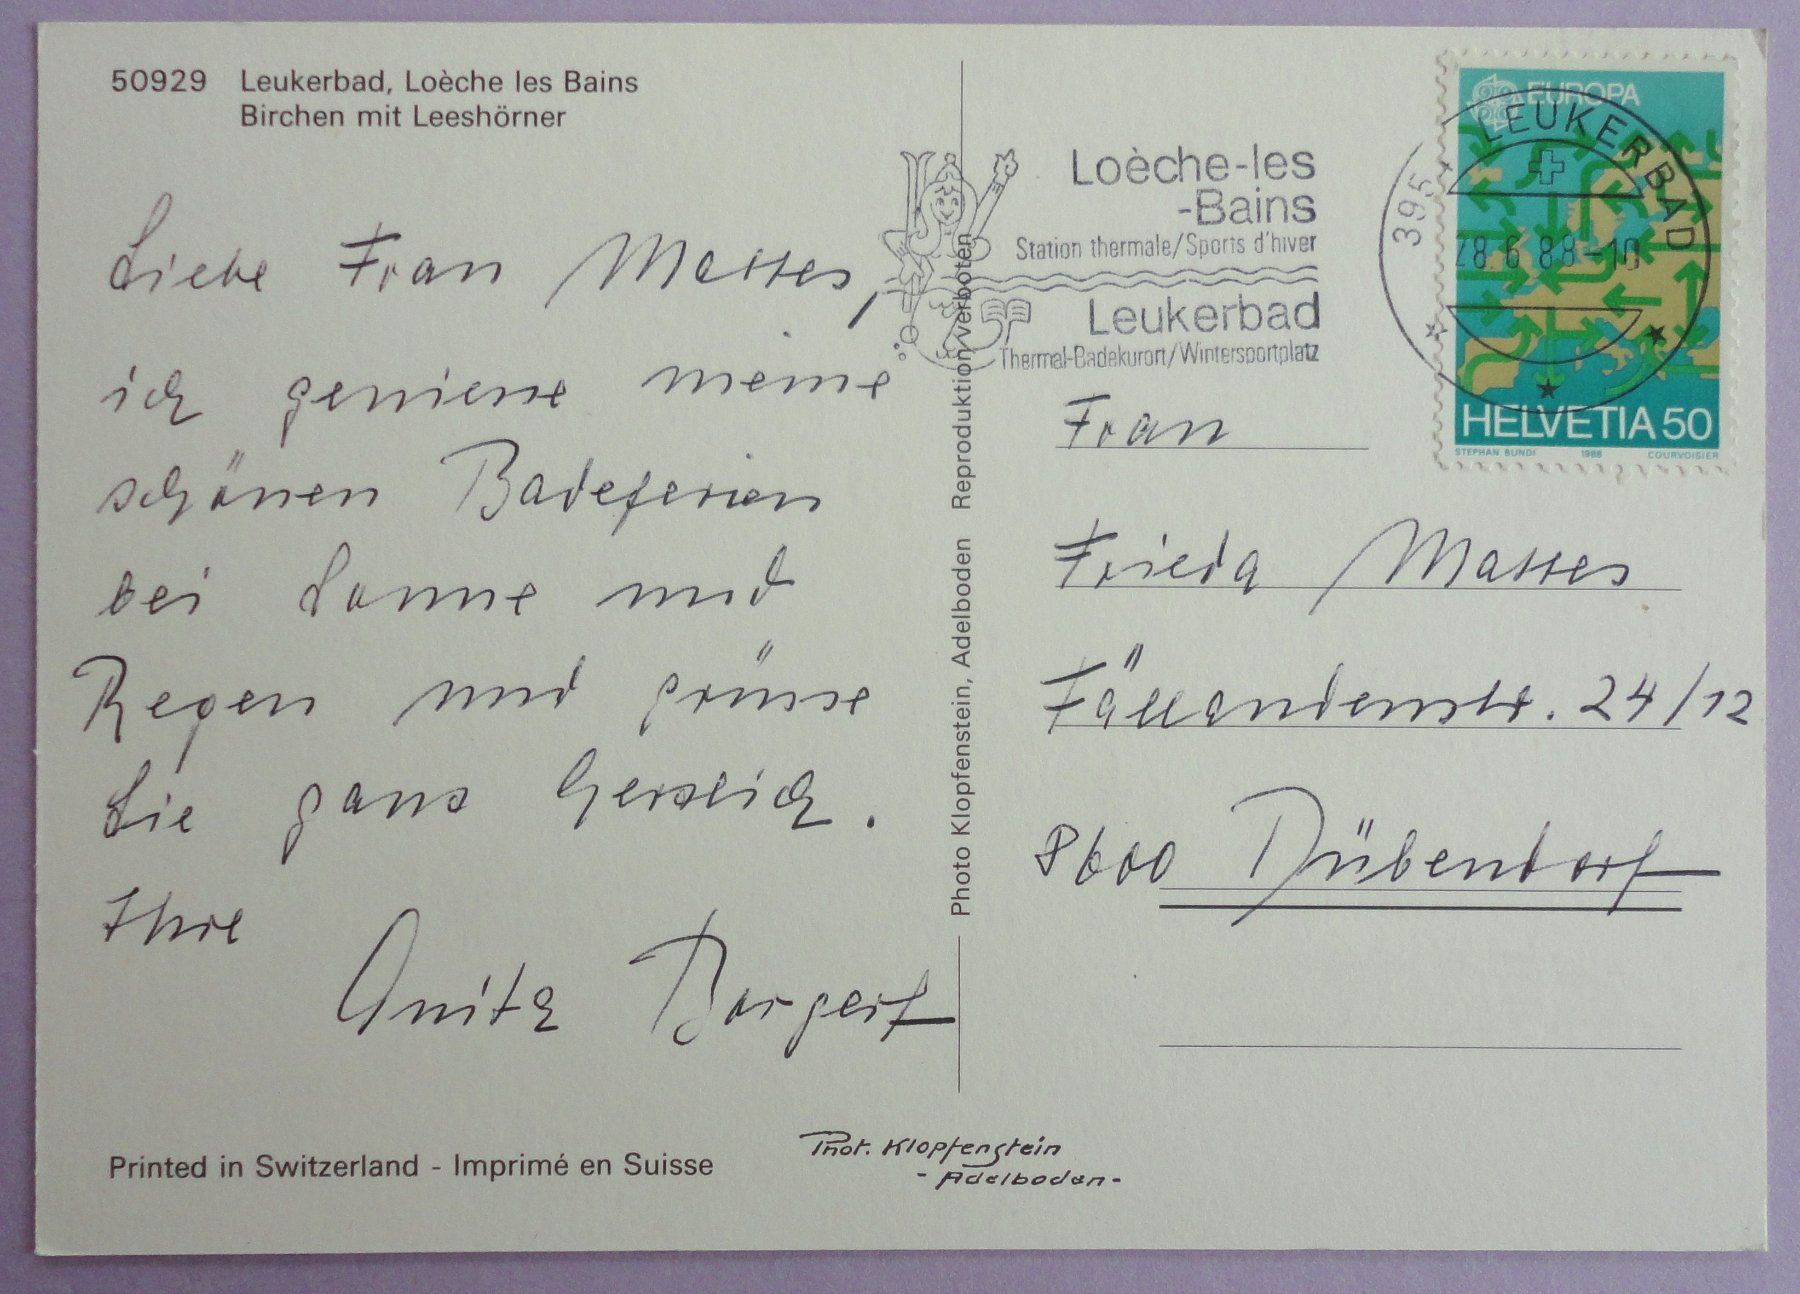 50929 Leukerbad, Loèche les Bains
Birchen mit Leeshörner
Liebe Frau Mattes,
ich geniesse meine
schönen Badeferien
bei Sonne und
Regen und grüsse
Sie ganz herzlich.
Ihre
Anita Borgert
Printed in Switzerland - Imprimé en Suisse
Photo Klopfenstein, Adelboden Reproduktion verboten
Phot. Klopfenstein
- Adelboden -
Loèche-les
-Bains
Station thermale/Sports d'hiver
Leukerbad
Thermal-Badekurort/Wintersportplatz
LEUKERBAD
28.6 88-10
EUROPA
HELVETIA 50
STEPHAN BUNDI 1988 COURVOISIER
Frau
Frieda Mattes
Fällandenstr. 24/12
8600 Dübendorf